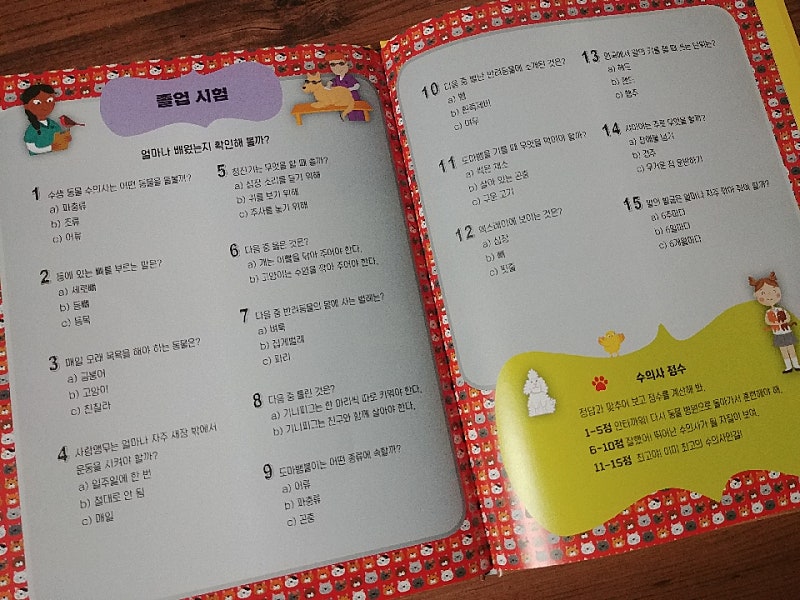 졸업 시험
얼마나 배웠는지 확인해 볼까?
1 수생 동물 수의사는 어떤 동물을 돌볼까?
a) 파충류
b) 조류
c) 어류
2 등에 있는 뼈를 부르는 말은?
a) 세로뼈
b) 등뼈
c) 등목
3 매일 모래 목욕을 해야 하는 동물은?
a) 금붕어
b) 고양이
c) 친칠라
4 사랑앵무는 얼마나 자주 새장 밖에서
운동을 시켜야 할까?
a) 일주일에 한 번
b) 절대로 안 됨
c) 매일
5 청진기는 무엇을 할 때 쓸까?
a) 심장 소리를 듣기 위해
b) 귀를 보기 위해
c) 주사를 놓기 위해
6 다음 중 옳은 것은?
a) 개는 이빨을 닦아 주어야 한다.
b) 고양이는 수염을 깎아 주어야 한다.
7 다음 중 반려동물의 몸에 사는 벌레는?
a) 벼룩
b) 집게벌레
c) 파리
8 다음 중 틀린 것은?
a) 기니피그는 한 마리씩 따로 키워야 한다.
b) 기니피그는 친구와 함께 살아야 한다.
9 도마뱀붙이는 어떤 종류에 속할까?
a) 어류
b) 파충류
c) 곤충
10 다음 중 별난 반려동물에 소개된 것은?
a) 뱀
b) 흰족제비
c) 여우
11 도마뱀을 기를 때 무엇을 먹여야 할까?
a) 썩은 채소
b) 살아 있는 곤충
c) 구운 고기
12 엑스레이에 보이는 것은?
a) 심장
b) 뼈
c) 핏줄
13 영국에서 말의 키를 잴 때 쓰는 단위는?
a) 헤드
b) 핸드
c) 행주
14 샤이어는 주로 무엇을 할까?
a) 장애물 넘기
b) 경주
c) 무거운 짐 운반하기
15 말의 발굽은 얼마나 자주 깎아 줘야 할까?
a) 6주마다
b) 6일마다
c) 6개월마다
수의사 점수
정답과 맞추어 보고 점수를 계산해 봐.
1-5점 안타까워! 다시 동물 병원으로 돌아가서 훈련해야 해.
6-10점 잘했어! 뛰어난 수의사가 될 자질이 보여.
11-15점 최고야! 이미 최고의 수의사인걸!